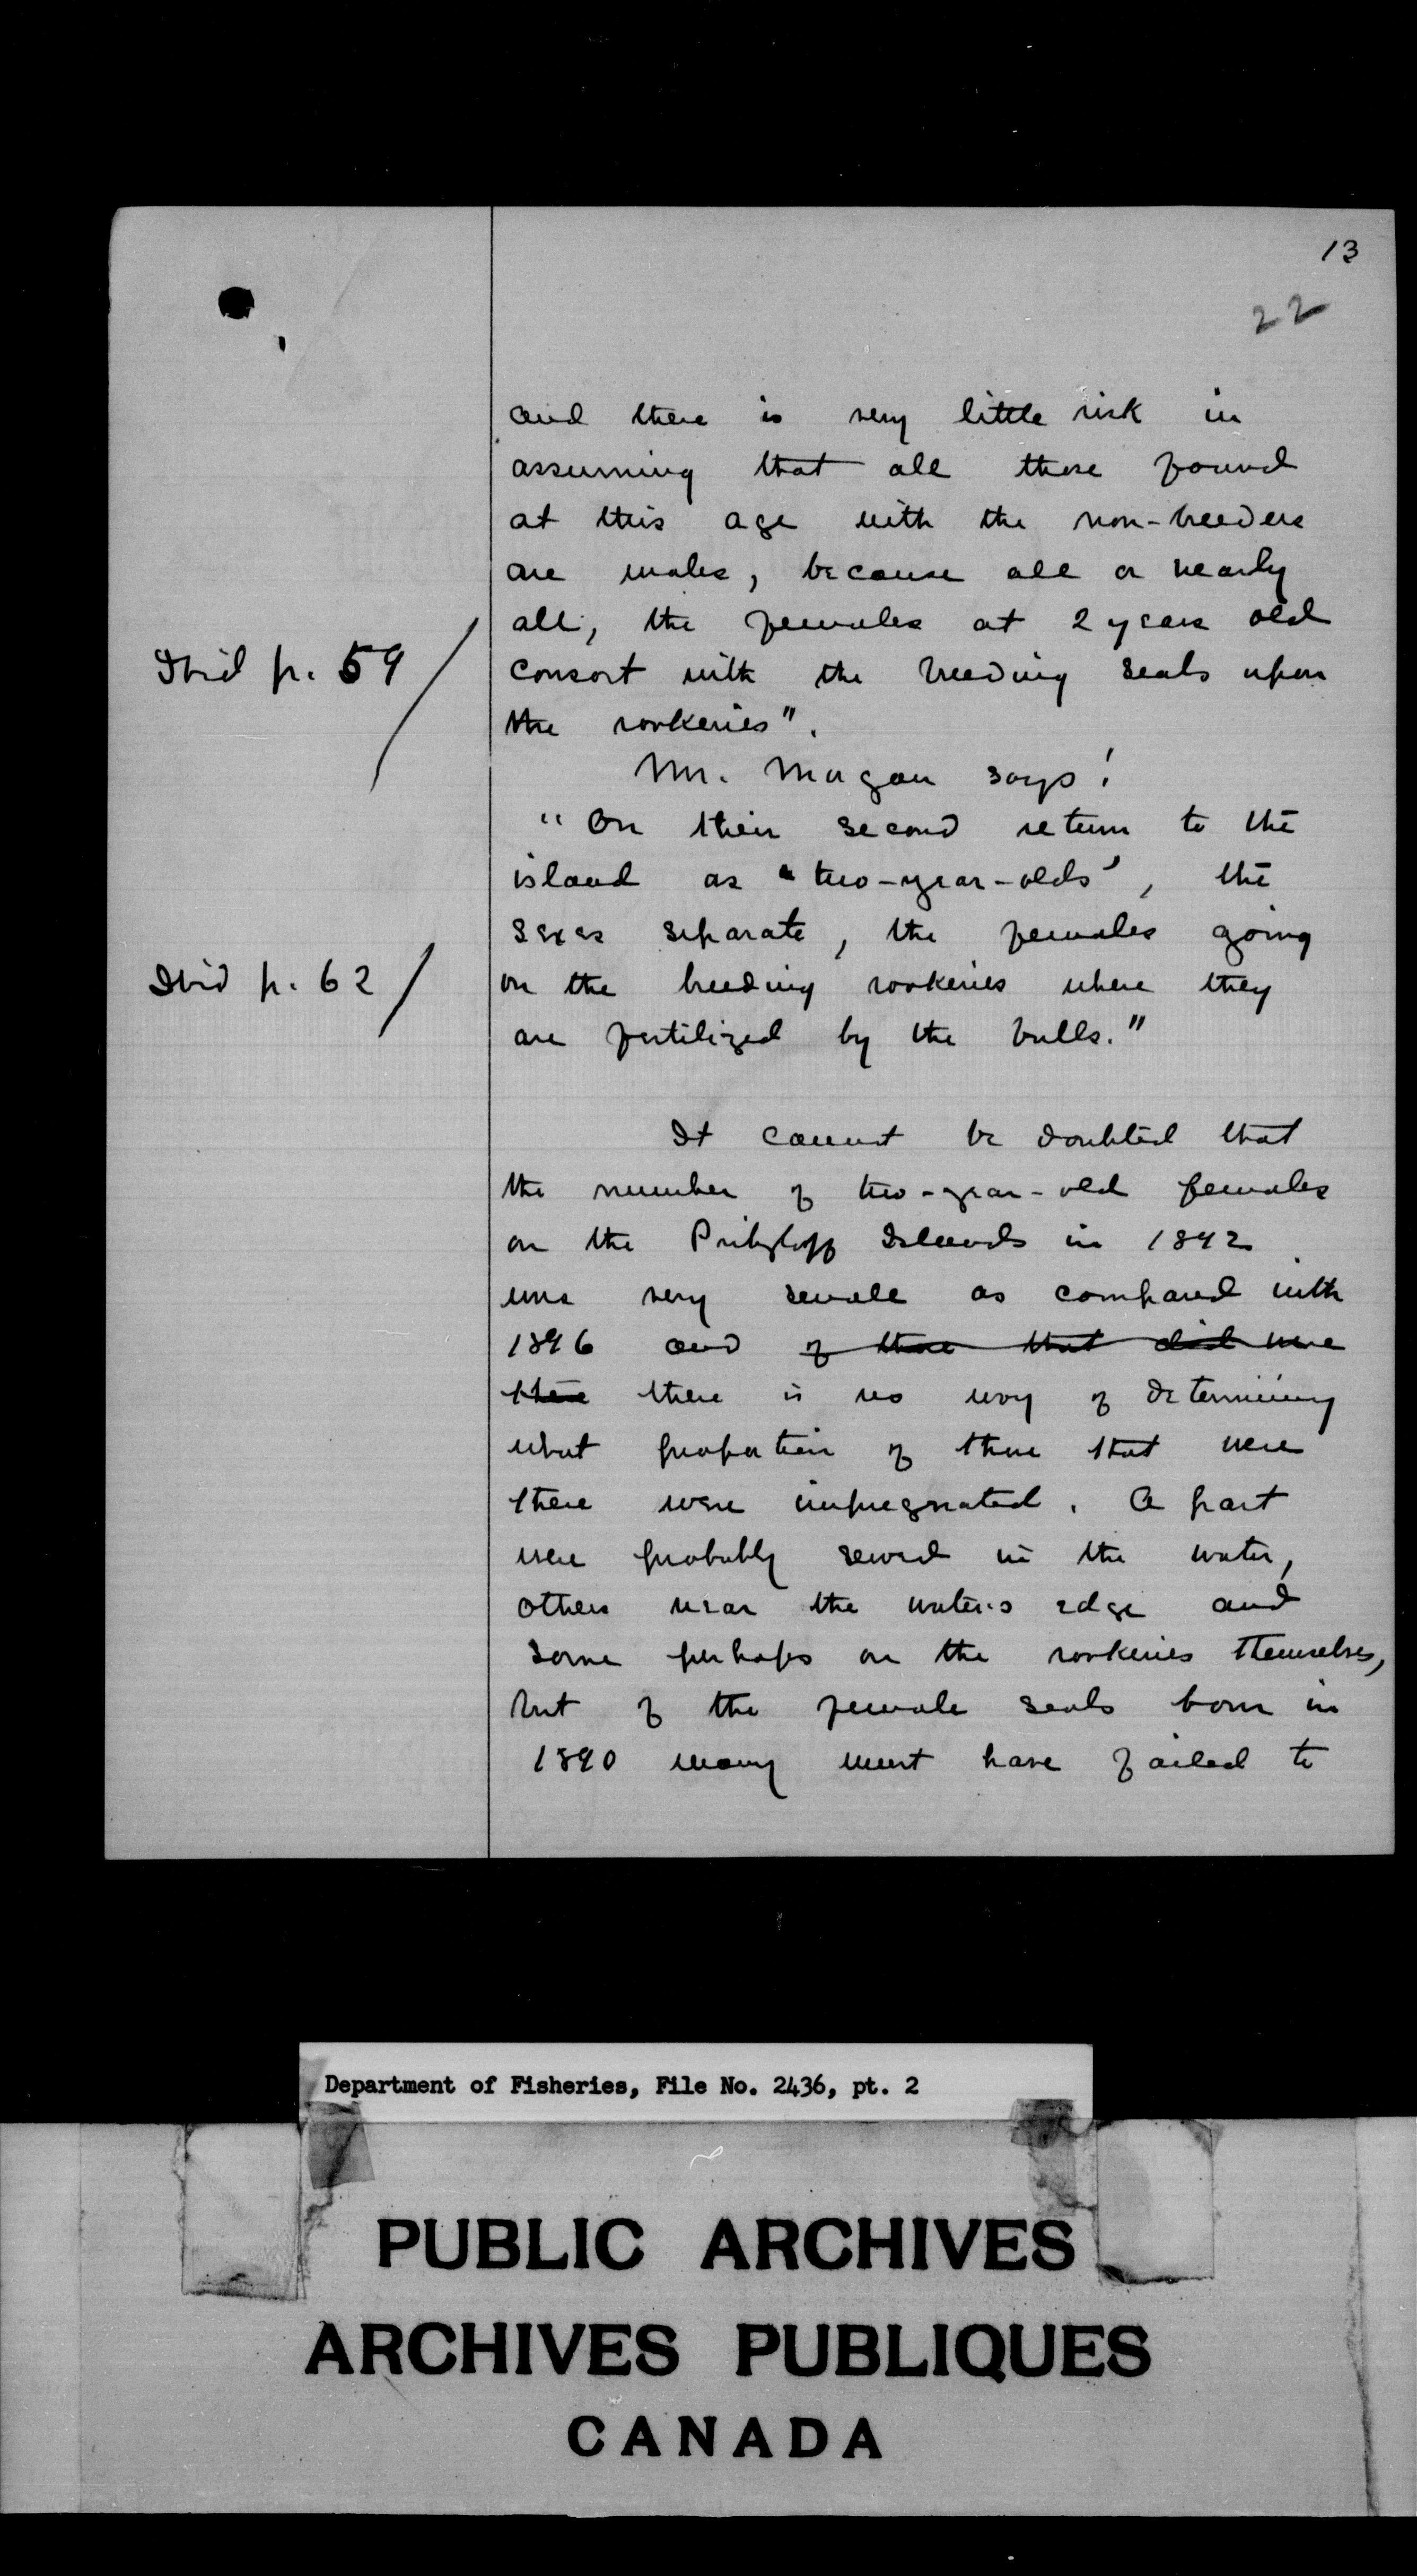 13
22
and there is very little risk in
assuming that all those found
at this age with the non-breeders
are males, because all or nearly
all, the females at 2 years old
Ibid p. 59 /
consort with the breeding seals upon
the rookeries".
Mr. Morgan says:
"On their second return to the
island as "two-year-olds", the
sexes separate, the females going
Ibid p. 62 /
on the breeding rookeries where they
are fertilized by the bulls."
It cannot be doubted that
the number of two-year-old females
on the Pribyloff Islands in 1892
was very small as compared with
1896 and of those that did were
there there is no way of determining
what proportion of those that were
there were impregnated. A part
were probably served in the water,
others near the water's edge and
some perhaps on the rookeries themselves,
but of the female seals born in
1890 many must have failed to
Department of Fisheries, File No. 2436, pt. 2
PUBLIC ARCHIVES
ARCHIVES PUBLIQUES
CANADA